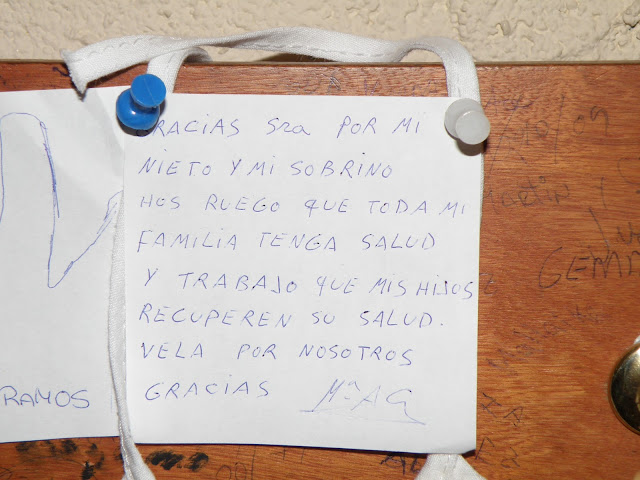 GRACIAS Sra POR MI
NIETO Y MI SOBRINO
HOS RUEGO QUE TODA MI
FAMILIA TENGA SALUD
Y TRABAJO QUE MIS HIJOS
RECUPEREN SU SALUD.
VELA POR NOSOTROS
GRACIAS Mª A G
RAMOS